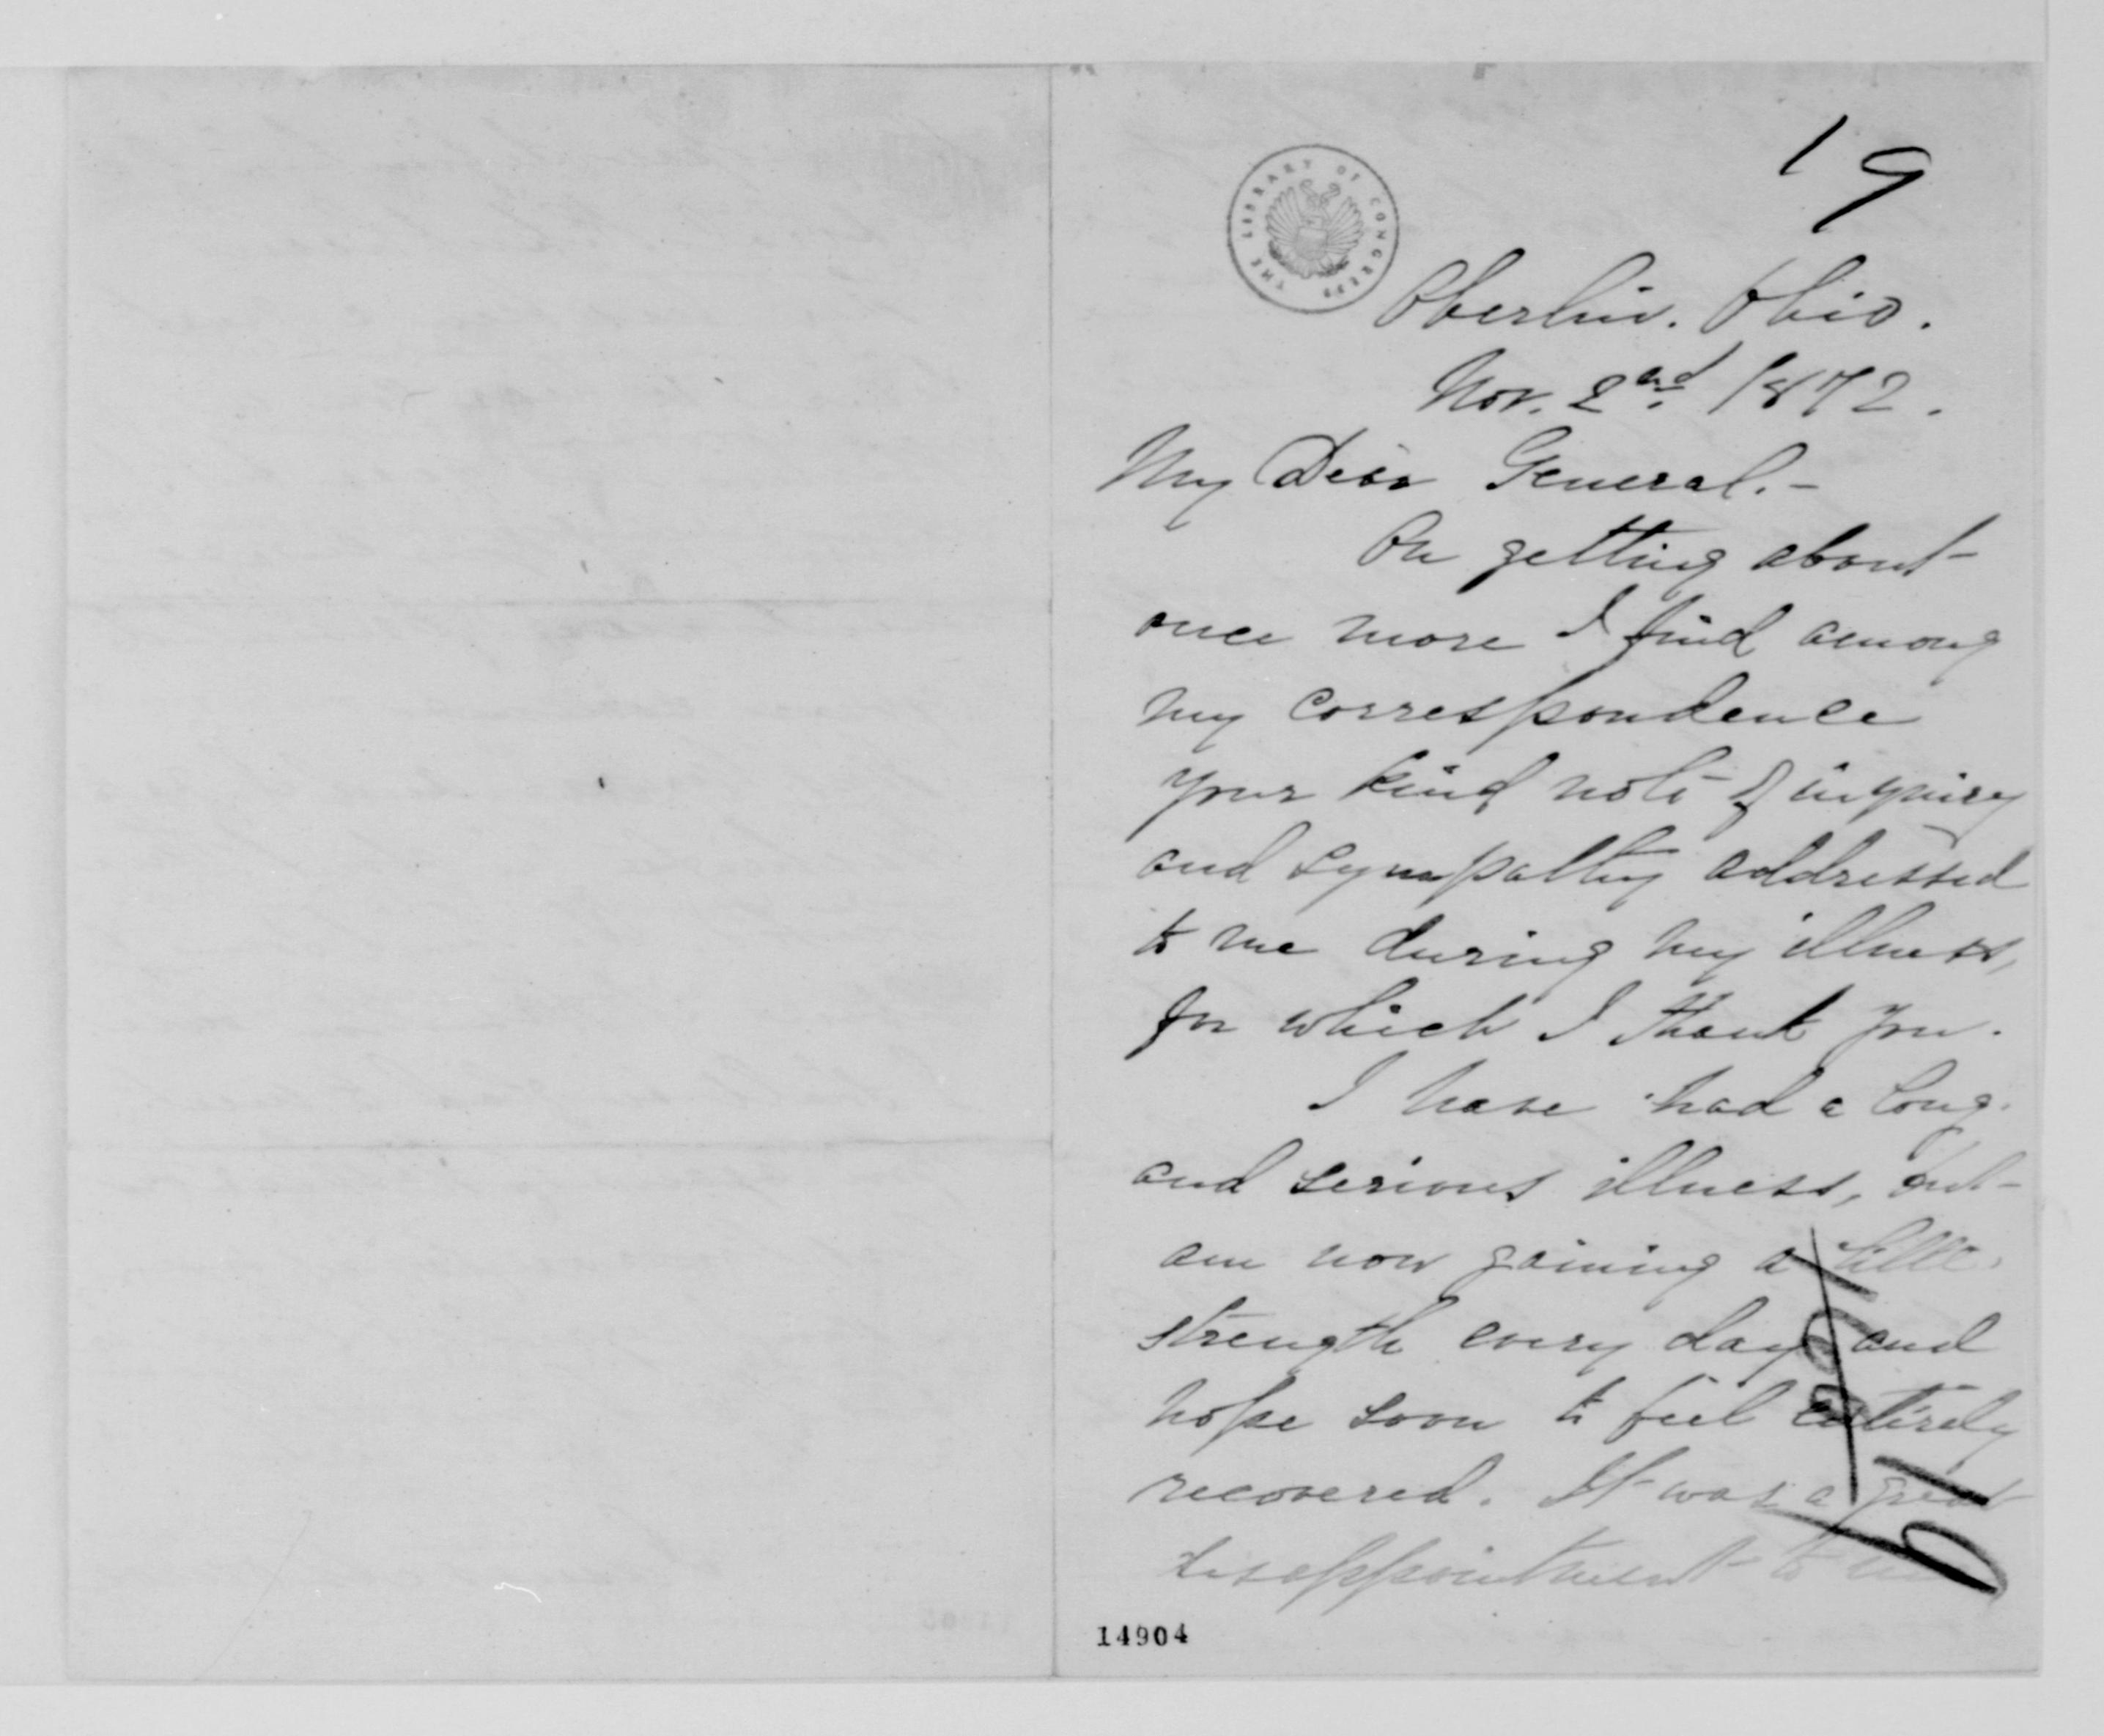 19
THE LIBRARY OF CONGRESS
Oberlin. Ohio.
Nov. 2nd. 1872.
My Dear General.-
On getting about
once more I find among
my correspondence
your kind note of inquiry
and sympathy addressed
to me during my illness,
for which I thank you.
I have had a long
and serious illness, but
am now gaining a little
strength every day and
hope soon to feel entirely
recovered. It was a great
disappointment to
14904